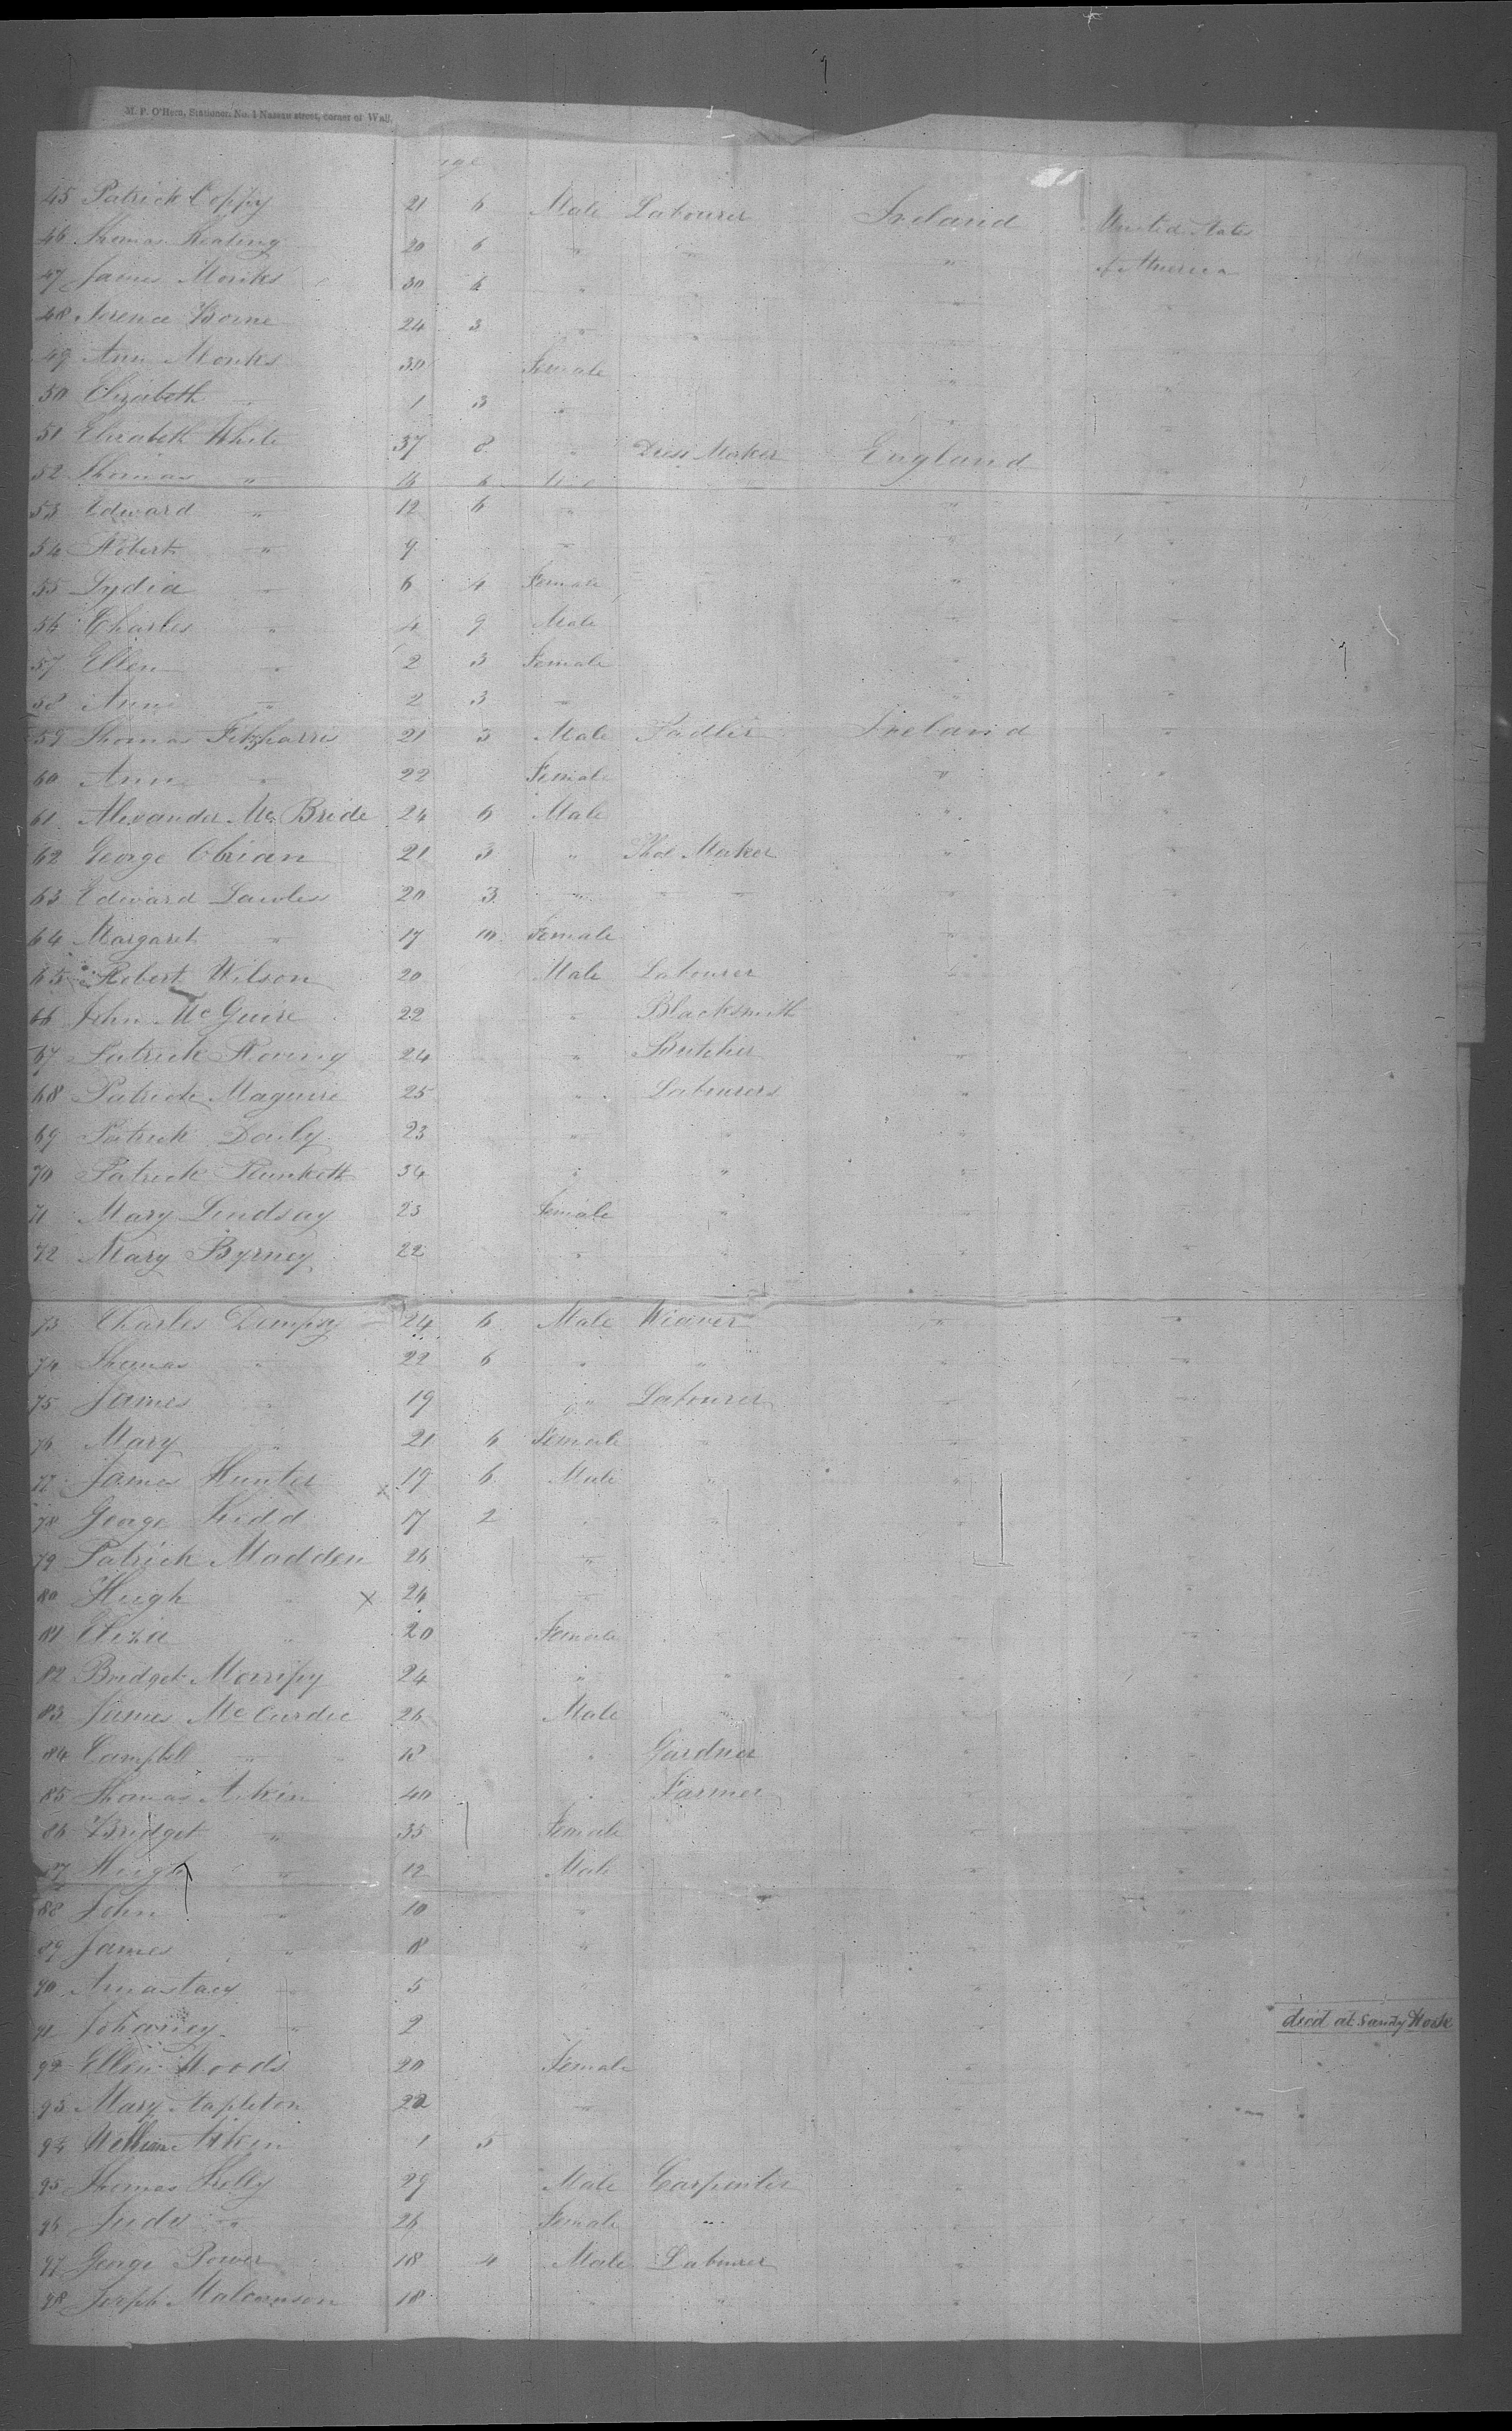 M. P. O'Hern, Stationer, No. 1 Nassau street, corner of Wall.
age
45 Patrick Coppy 21 6 Male Labourer Ireland United States
46 Thomas Keating 20 6 " " " of America
47 James Monks 30 6 " " " "
48 Terence Borne 24 3 " " " "
49 Ann Monks 30 Female " "
50 Elizabeth " 1 3 " " "
51 Elizabeth White 37 8 " Dress Maker England "
52 Thomas " 6 " "
53 Edward " 12 6 " " "
54 Robert " 9 " " "
55 Lydia " 6 4 Female " "
56 Charles " 4 9 Male " "
57 Ellen " 2 3 Female " "
58 Ann " 2 3 " " "
59 Thomas Fitzharris 21 3 Male Sadler Ireland "
60 Ann " 22 Female " "
61 Alexander Mc Bride 24 6 Male " "
62 George Obrian 21 3 " Shoe Maker " "
63 Edward Lawless 20 3 " " " " "
64 Margaret " 17 10 Female " "
65 Robert Wilson 20 Male Labourer " "
66 John McGuire 22 " Blacksmith " "
67 Patrick 24 " Butcher " "
68 Patrick Maguire 25 " Labourers " "
69 Patrick Dauly 23 " " " "
70 Patrick Plunkett 34 " " " "
71 Mary Lindsay 23 Female " " "
72 Mary Byrney 22 " " " "
73 Charles Dempsy 24 6 Male Weaver " "
74 Thomas " 22 6 " " " "
75 James " 19 " Labourer " "
76 Mary " 21 6 Female " " "
77 James Hunter x 19 6 Male " " "
78 George Kidd 17 2 " " " "
79 Patrick Madden 26 " " "
80 Hugh " x 24 " " "
81 Eliza " 20 Female " "
82 Bridget 24 " " " "
83 James McCurdie 26 Male " " "
84 Campbell " " Gardner " "
85 Thomas Aikin 40 " Farmer " "
86 Bridget " 35 Female " "
87 Hugh " 12 Male " "
88 John " 10 " " "
89 James " 8 " " "
90 Anastacy " 5 " " "
91 Johaney " 2 " " died at Sandy Hook
92 Ellen Woods 20 Female " "
93 Mary Stapleton 22 " " "
94 William Aikin 1 5 " "
95 Thomas Kelly 29 Male Carpenter " "
96 Judy " 26 Female " " "
97 George Power 18 4 Male Labourer " "
98 Joseph Malcomson 18 " " " "